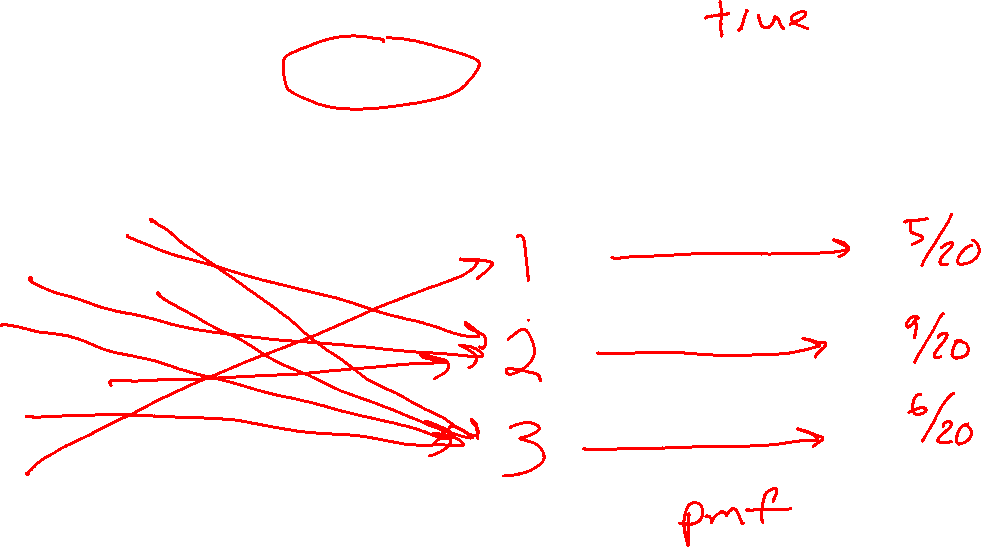 time
1 5/20
2 9/20
3 6/20
pmf